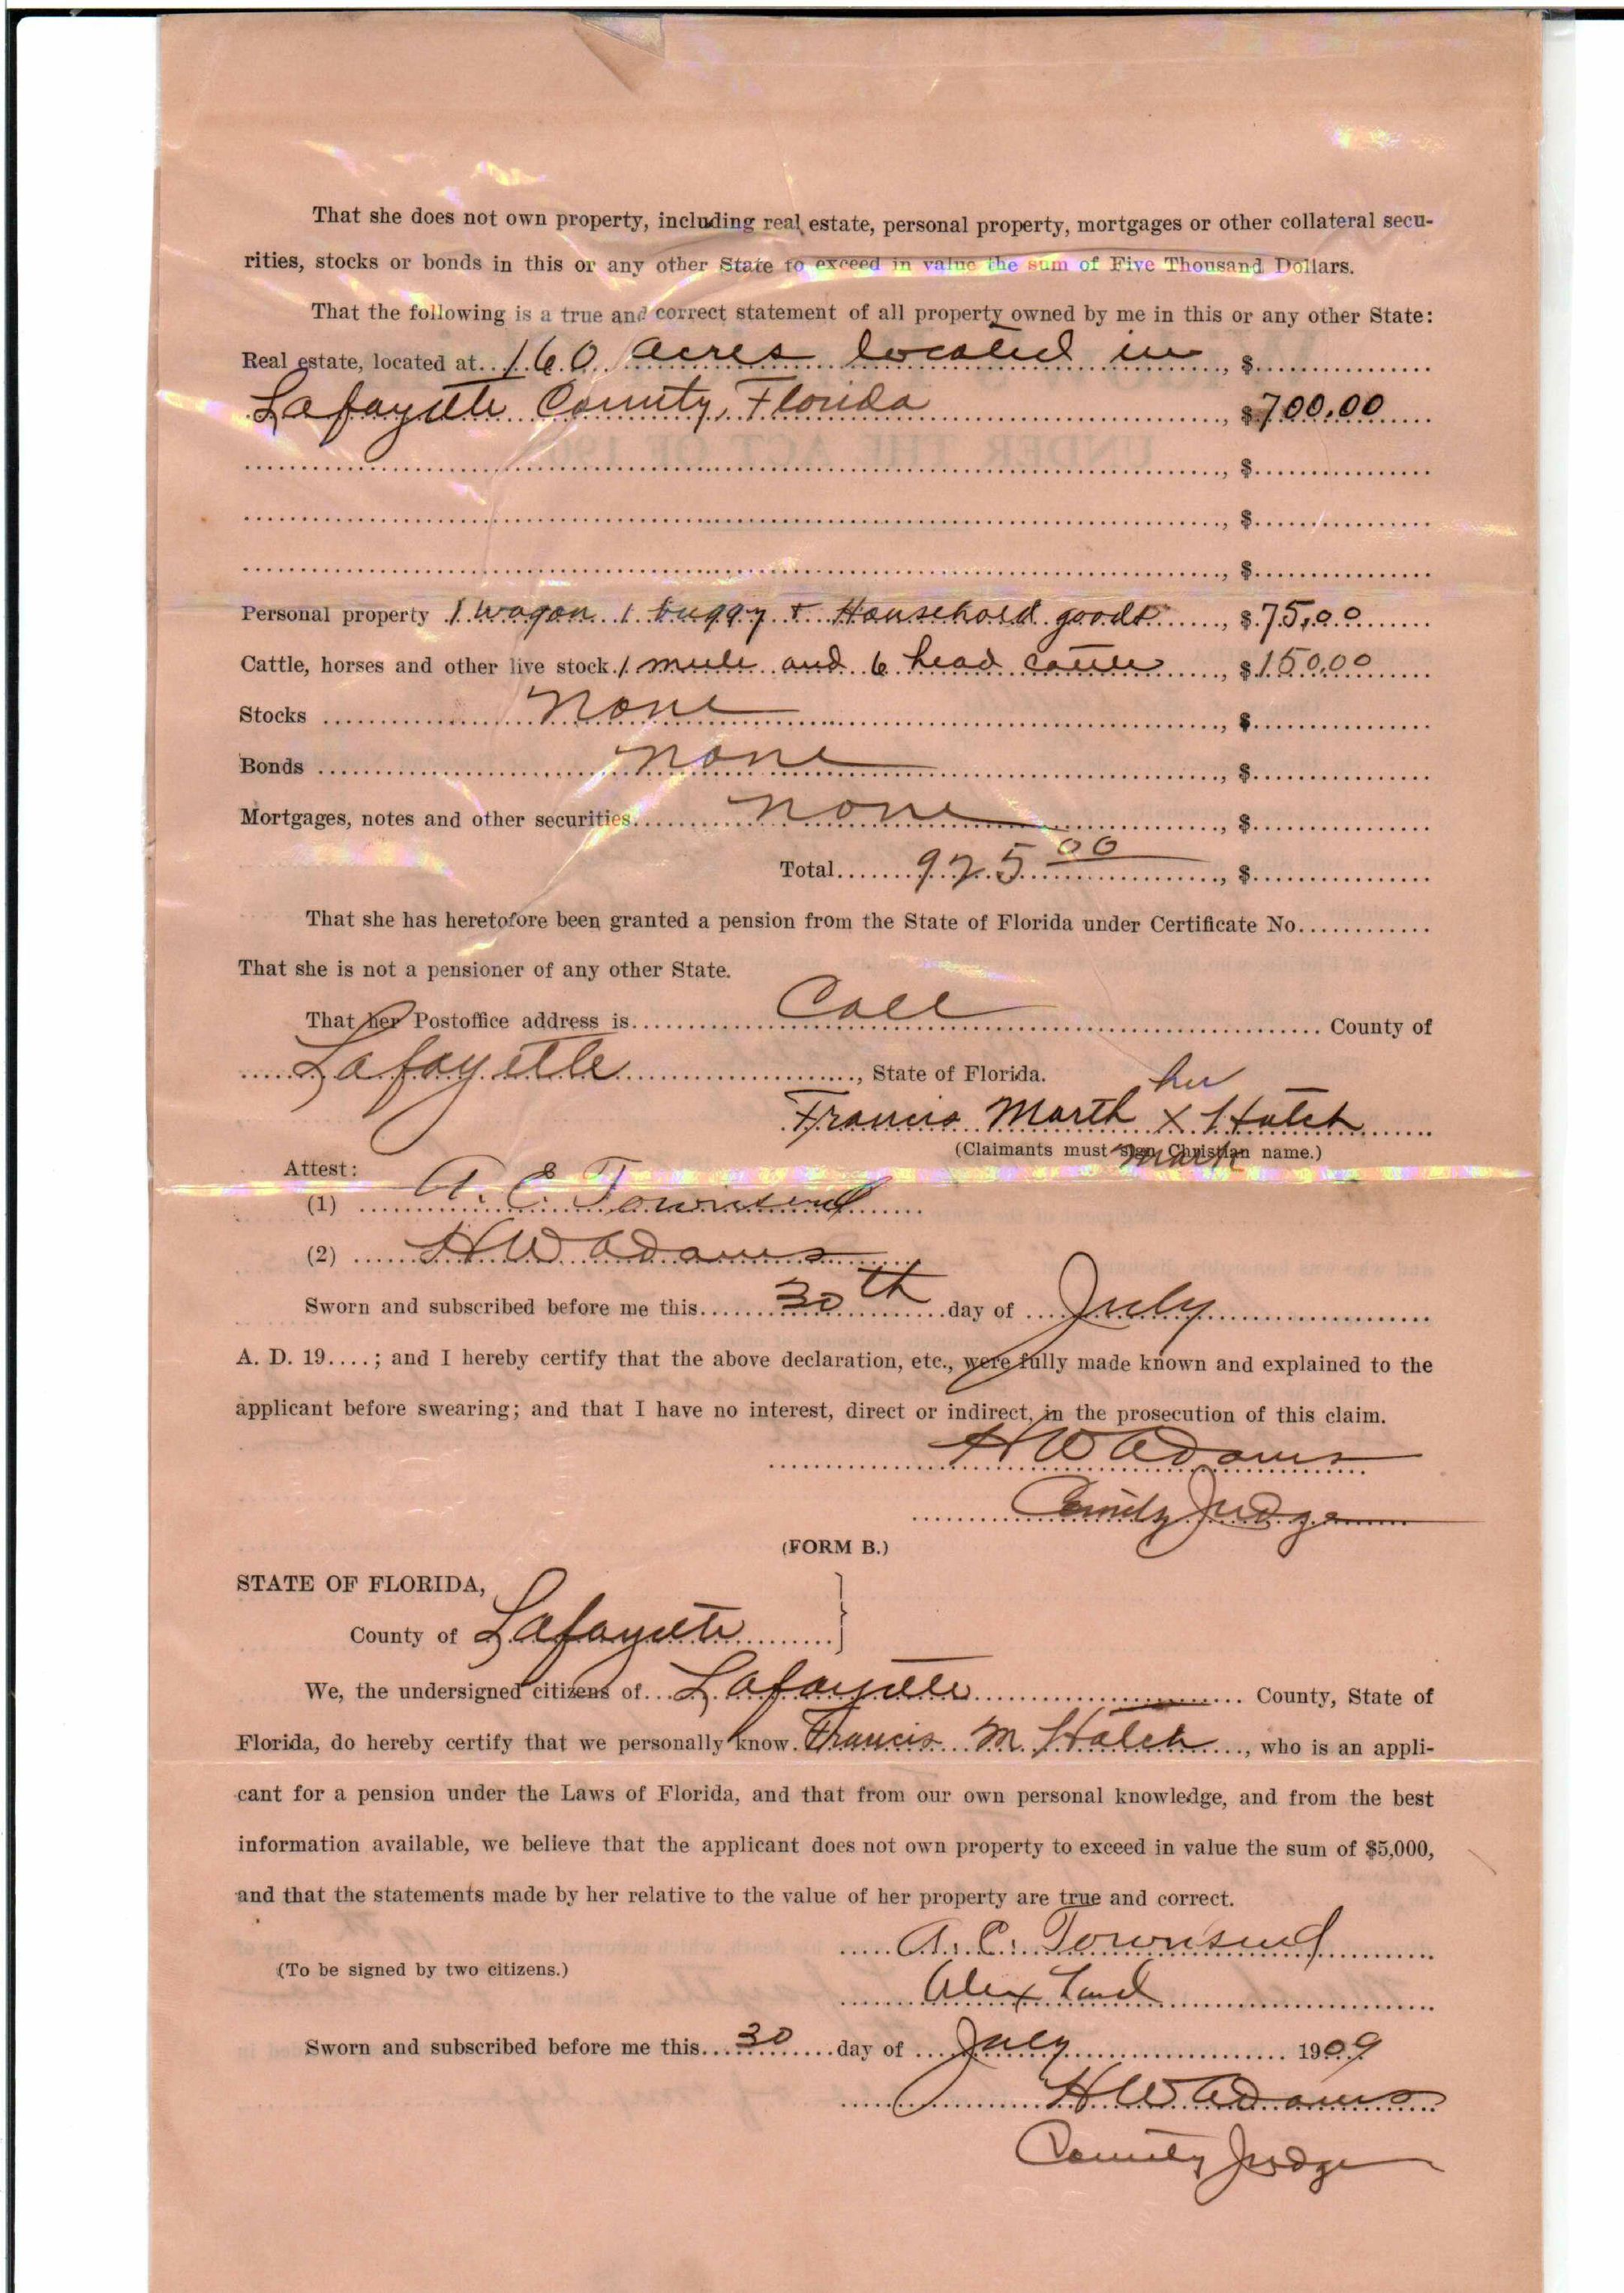 That she does not own property, including real estate, personal property, mortgages or other collateral secu-
rities, stocks or bonds in this or any other State to exceed in value the sum of Five Thousand Dollars.
That the following is a true and correct statement of all property owned by me in this or any other State:
Real estate, located at..160 acres located in, $
Lafayette County, Florida, $700.00
, $
, $
, $
Personal property 1 wagon 1 buggy & Household goods, $75.00
Cattle, horses and other live stock. 1 mule and 6 head cattle, $150.00
Stocks none, $
Bonds none, $
Mortgages, notes and other securities none, $
Total 925 00, $
That she has heretofore been granted a pension from the State of Florida under Certificate No.
That she is not a pensioner of any other State.
That her Postoffice address is Call County of
Lafayette, State of Florida.
her
Francis Marth X Hatch
(Claimants must sign Christian name.)
mark
Attest:
(1) A. E. Townsend
(2) H W Adams
Sworn and subscribed before me this 30th day of July
A. D. 19....; and I hereby certify that the above declaration, etc., were fully made known and explained to the
applicant before swearing; and that I have no interest, direct or indirect, in the prosecution of this claim.
H W Adams
County Judge
(FORM B.)
STATE OF FLORIDA,
County of Lafayette
We, the undersigned citizens of Lafayette County, State of
Florida, do hereby certify that we personally know Francis M. Hatch, who is an appli-
cant for a pension under the Laws of Florida, and that from our own personal knowledge, and from the best
information available, we believe that the applicant does not own property to exceed in value the sum of $5,000,
and that the statements made by her relative to the value of her property are true and correct.
A. E. Townsend
(To be signed by two citizens.)
Alex Land
Sworn and subscribed before me this 30 day of July 1909
H W Adams
County Judge